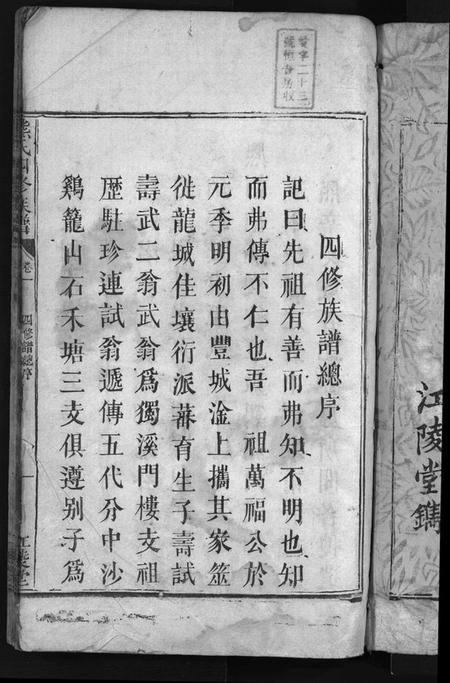 江陵堂鐫
四修族譜總序
記曰先祖有善而弗知不明也知
而弗傳不仁也吾 祖萬福公於
元季明初由豐城淦上攜其家筮
徙龍城佳壤衍派蕃育生子壽試
壽武二翁武翁爲獨溪門樓支祖
歷駐珍連試翁遞傳五代分中沙
鷄籠山石禾塘三支俱遵别子爲
熊氏四修族譜
卷一
四修譜總序
江陵堂